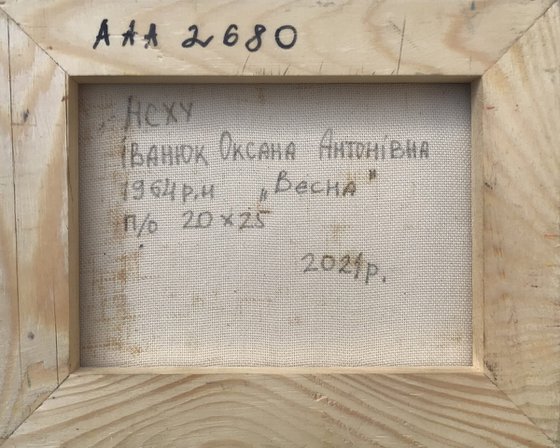 ААА 2680
НСХУ
Іванюк Оксана Антонівна
1964р.н „Весна"
п/о 20×25
2021р.